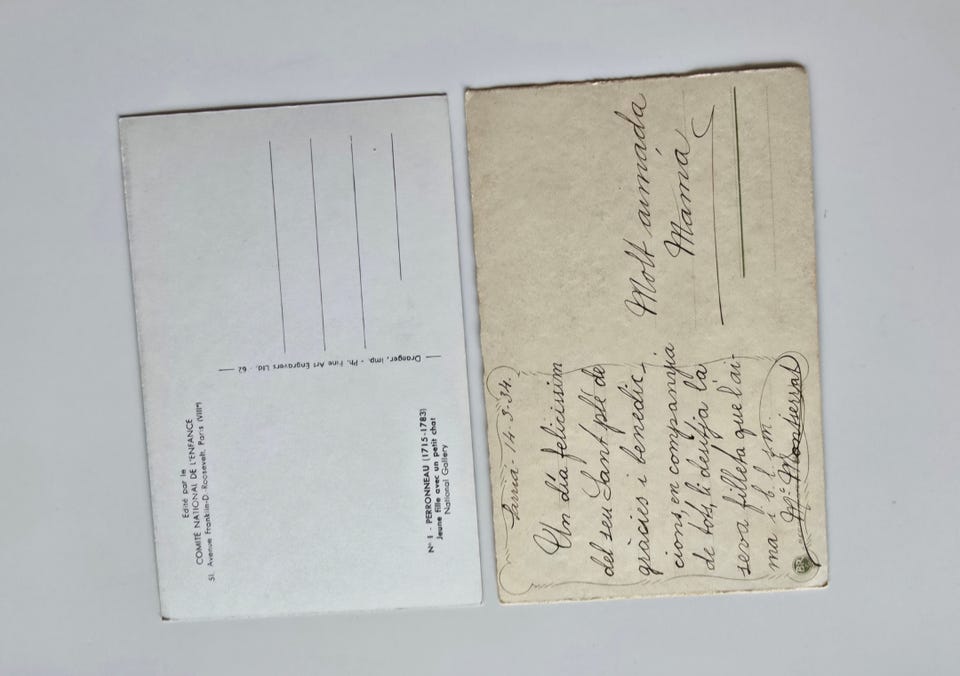 Edité par le
COMITÉ NATIONAL DE L'ENFANCE
51, Avenue Franklin-D.-Roosevelt, Paris (VIIIe)
N° 1 - PERRONNEAU (1715-1783)
Jeune fille avec un petit chat
National Gallery
Draeger, imp. - Ph. Fine Art Engravers Ltd. - 62
Sarrià - 14-3-34.
Un día felicissim
del seu Sant plé de
gràcies i benedic-
cions, en companyia
de tots, li desitja la
seva filleta que l'ai-
ma i b. l. s. m.
Mª Montserrat
Molt aimada
Mamá